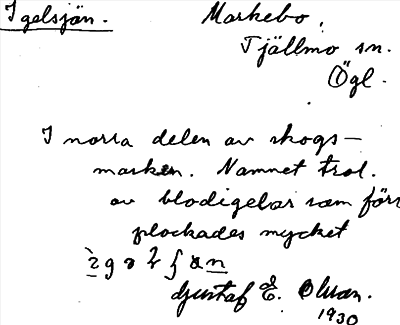 Igelsjön.
Markebo,
Tjällmo sn.
Ögl.
I norra delen av skogs-
marken. Namnet trol.
av blodigelar som förr
plockades mycket
Gustaf E. Olson.
1930